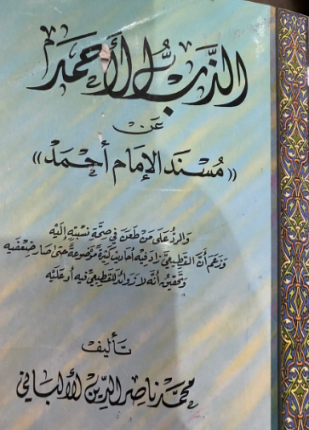 الذَّبُّ الأَحْمَد
عَن
« مُسْنَدِ الإِمَامِ أَحْمَدْ »
وَالرد عَلى مَنْ طَعَنَ فِي صِحَّةِ نِسْبَتِهِ إِلَيْهِ
وَزَعَمَ أَنَّ القَطِيعِيَّ زَادَ فِيهِ أَحَادِيثَ كَثِيرَةً مَوْضُوعَةً حَتَّى صَارَ ضِعْفَيْهِ
وَتَحْقِيقُ أَنَّهُ لاَ زَوَائِدَ لِلقَطِيعِيِّ فِيهِ أَو عَلَيْهِ
تأليف
محمّد ناصر الدين الألباني